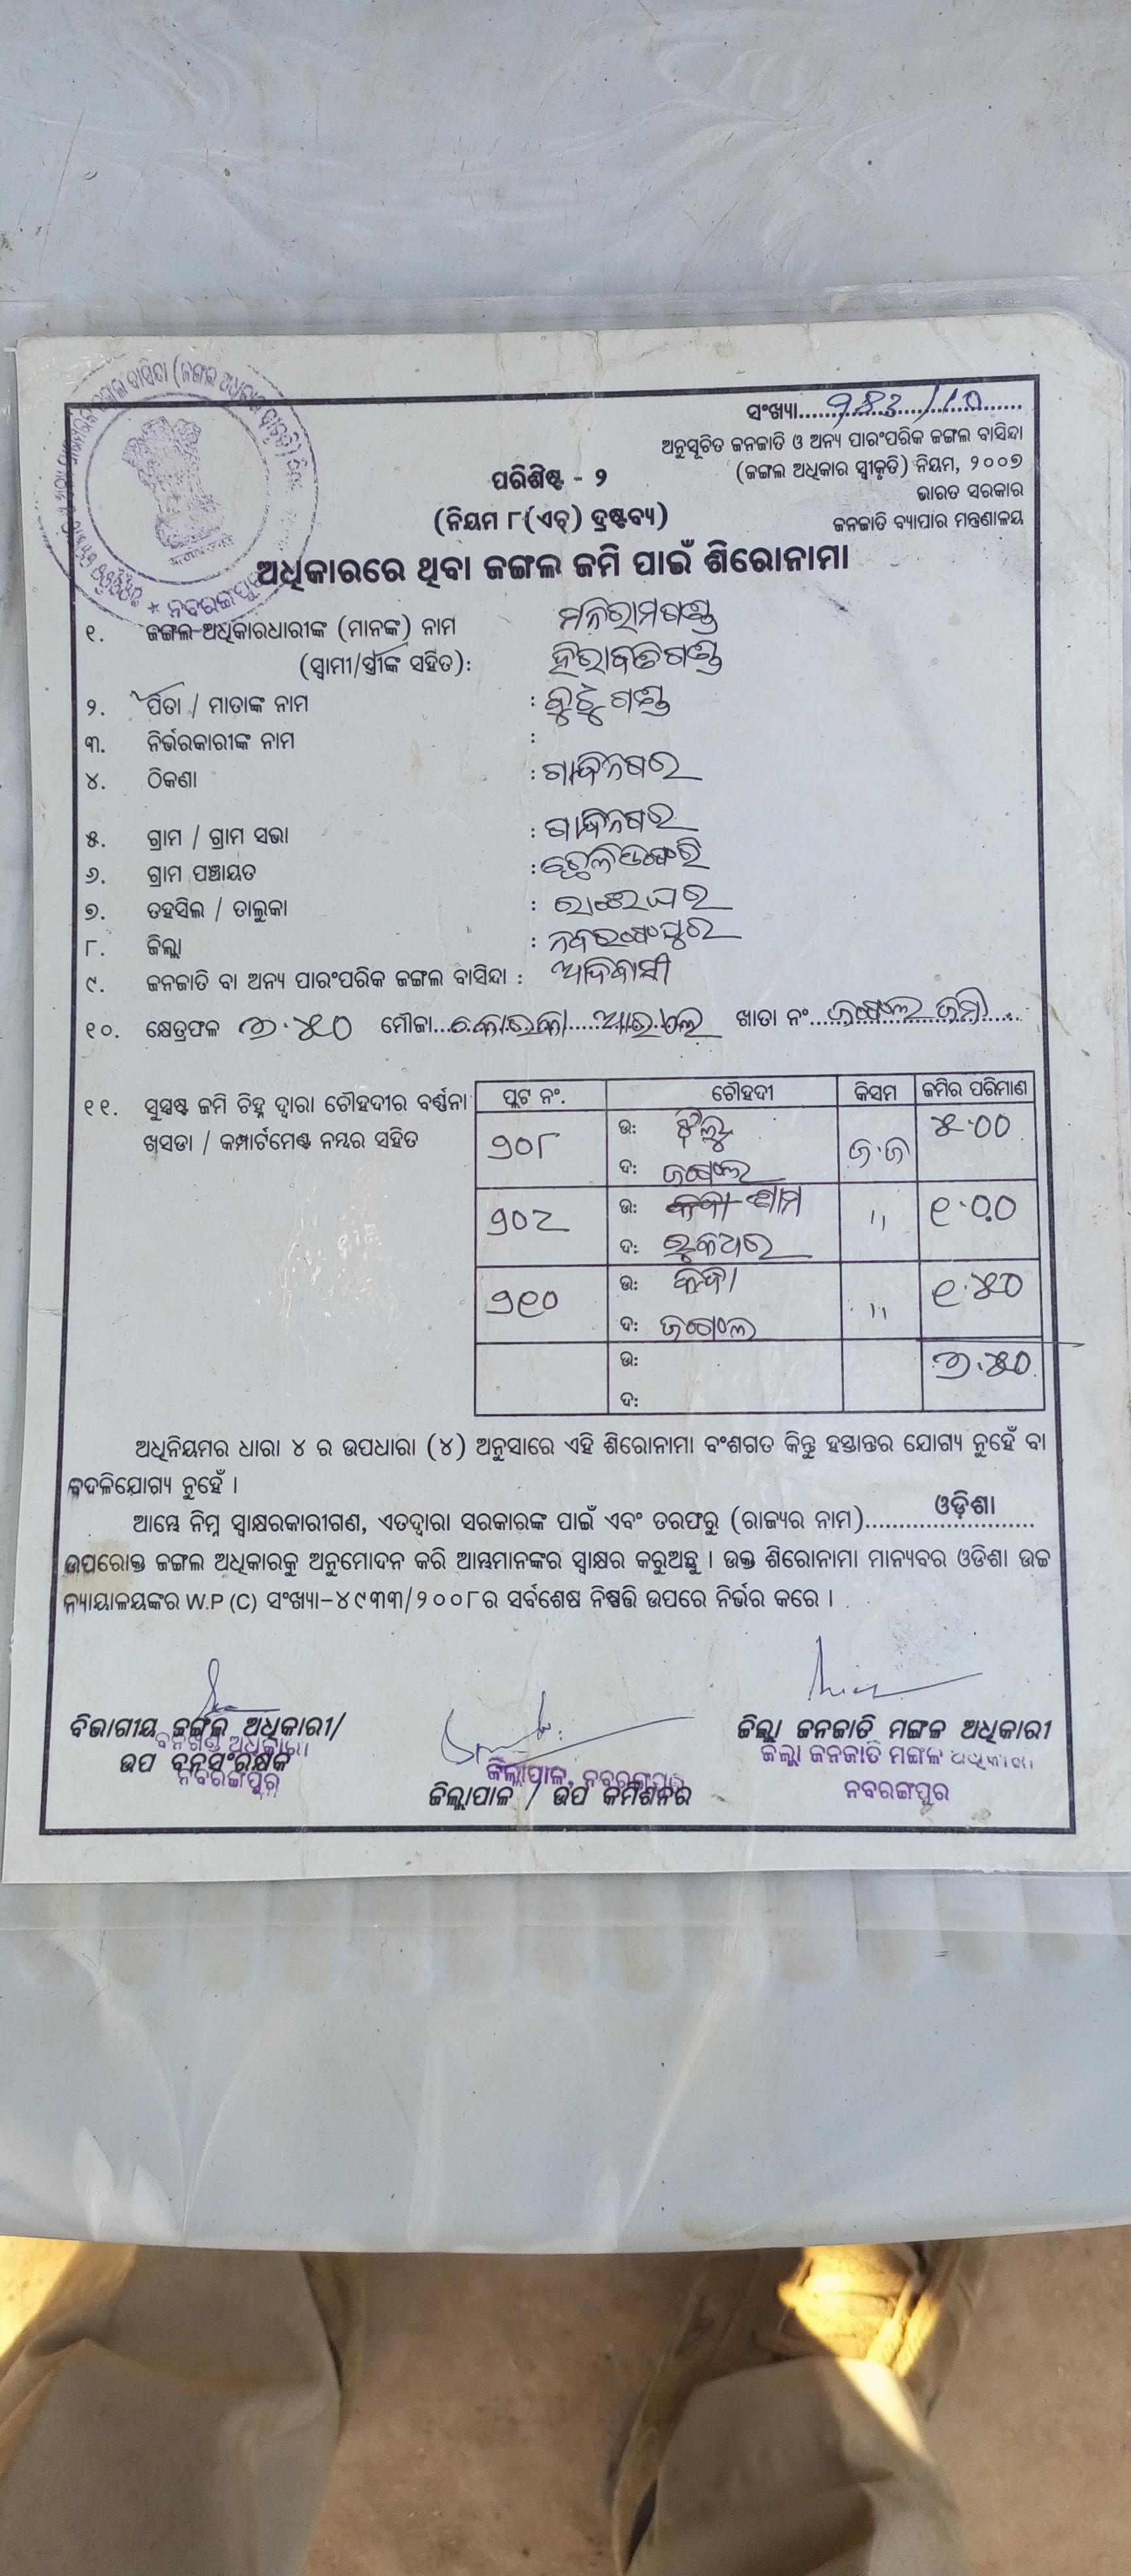 ସଂଖ୍ୟା
ଅନୁସୂଚିତ ଜନଜାତି ଓ ଅନ୍ୟ ପାରଂପରିକ ଜଙ୍ଗଲ ବାସିନ୍ଦା
(ଜଙ୍ଗଲ ଅଧିକାର ସ୍ୱୀକୃତି) ନିୟମ, ୨୦୦୭
ଭାରତ ସରକାର
ଜନଜାତି ବ୍ୟାପାର ମନ୍ତ୍ରଣାଳୟ
ପରିଶିଷ୍ଟ - ୨
(ନିୟମ ୮(ଏଚ୍) ଦ୍ରଷ୍ଟବ୍ୟ)
ଅଧିକାରରେ ଥିବା ଜଙ୍ଗଲ ଜମି ପାଇଁ ଶିରୋନାମା
୧. ଜଙ୍ଗଲ ଅଧିକାରଧାରୀଙ୍କ (ମାନଙ୍କ) ନାମ ମନିରାମ ଗଣ୍ଡ
(ସ୍ୱାମୀ/ସ୍ତ୍ରୀଙ୍କ ସହିତ): ହିରାବତି ଗଣ୍ଡ
୨. ପିତା / ମାତାଙ୍କ ନାମ : ଗଣ୍ଡ
୩. ନିର୍ଭରକାରୀଙ୍କ ନାମ :
୪. ଠିକଣା : ଗାନ୍ଧିନଗର
୫. ଗ୍ରାମ / ଗ୍ରାମ ସଭା : ଗାନ୍ଧିନଗର
୬. ଗ୍ରାମ ପଞ୍ଚାୟତ :
୭. ତହସିଲ / ତାଲୁକା : ରାଇଘର
୮. ଜିଲ୍ଲା : ନବରଙ୍ଗପୁର
୯. ଜନଜାତି ବା ଅନ୍ୟ ପାରଂପରିକ ଜଙ୍ଗଲ ବାସିନ୍ଦା : ଆଦିବାସୀ
୧୦. କ୍ଷେତ୍ରଫଳ ୭.୫୦ ମୌଜା ଖାତା ନଂ ଜଙ୍ଗଲ ଜମି
୧୧. ସୁସ୍ପଷ୍ଟ ଜମି ଚିହ୍ନ ଦ୍ୱାରା ଚୌହଦୀର ବର୍ଣ୍ଣନା
ଖସଡା / କମ୍ପାର୍ଟମେଣ୍ଟ ନମ୍ବର ସହିତ
ପ୍ଲଟ ନଂ. ଚୌହଦୀ କିସମ ଜମିର ପରିମାଣ
୨୦୮ ଉ: ଜ.ଜ ୫.୦୦
ଦ: ଜଙ୍ଗଲ
୨୦୯ ଉ: ,, ୧.୦୦
ଦ:
୨୧୦ ଉ: ,, ୧.୫୦
ଦ: ଜଙ୍ଗଲ
ଉ: ୭.୫୦
ଦ:
ଅଧିନିୟମର ଧାରା ୪ ର ଉପଧାରା (୪) ଅନୁସାରେ ଏହି ଶିରୋନାମା ବଂଶଗତ କିନ୍ତୁ ହସ୍ତାନ୍ତର ଯୋଗ୍ୟ ନୁହେଁ ବା
ବଦଳିଯୋଗ୍ୟ ନୁହେଁ ।
ଆମ୍ଭେ ନିମ୍ନ ସ୍ୱାକ୍ଷରକାରୀଗଣ, ଏତଦ୍ୱାରା ସରକାରଙ୍କ ପାଇଁ ଏବଂ ତରଫରୁ (ରାଜ୍ୟର ନାମ) ଓଡ଼ିଶା
ଉପରୋକ୍ତ ଜଙ୍ଗଲ ଅଧିକାରକୁ ଅନୁମୋଦନ କରି ଆମ୍ଭମାନଙ୍କର ସ୍ୱାକ୍ଷର କରୁଅଛୁ । ଉକ୍ତ ଶିରୋନାମା ମାନ୍ୟବର ଓଡିଶା ଉଚ୍ଚ
ନ୍ୟାୟାଳୟଙ୍କର W.P (C) ସଂଖ୍ୟା-୪୯୩୩/୨୦୦୮ର ସର୍ବଶେଷ ନିଷ୍ପତ୍ତି ଉପରେ ନିର୍ଭର କରେ ।
ବିଭାଗୀୟ ଜଙ୍ଗଲ ଅଧିକାରୀ/
ବନଖଣ୍ଡ ଅଧିକାରୀ
ଉପ ବନସଂରକ୍ଷକ
ନବରଙ୍ଗପୁର
ଜିଲ୍ଲାପାଳ, ନବରଙ୍ଗପୁର
ଜିଲ୍ଲାପାଳ / ଉପ କମିଶନର
ଜିଲ୍ଲା ଜନଜାତି ମଙ୍ଗଳ ଅଧିକାରୀ
ଜିଲ୍ଲା ଜନଜାତି ମଙ୍ଗଳ ଅଧିକାରୀ
ନବରଙ୍ଗପୁର